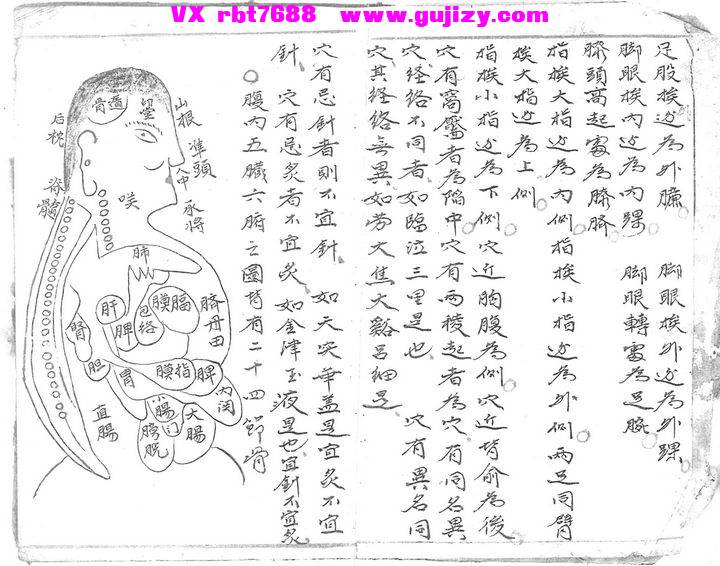 VX rbt7688 www.gujizy.com
足股挨边為外臁 脚眼挨外边為外踝
脚眼挨内边為内踝 脚眼轉處為足腕
膝頭高起處為膝臍
指挨大指边為内側指挨小指边為外側两足同臂
挨大指边為上側
指挨小指边為下側穴近胸腹為側穴近背俞為後
穴有窩靨者為陷中穴有两稜起者為穴有同名異
穴経絡不同者如臨泣三里是也 穴有異名同
穴其経絡無異如劳大焦大谿吕細是
穴有忌針者則不宜針 如天突華盖是宜炙不宜
針 穴有忌炙者不宜炙 如金津玉液是也宜針不宜炙
○腹内五臓六腑之圖背有二十四節骨
髓骨
山根
準頭
人中
承将
后枕
脊髓
咲
肺
肝
脾
包络
膜膈
臍丹田
腎
胆
胃
膜指
脾
直腸
小腸
大腸
膀胱